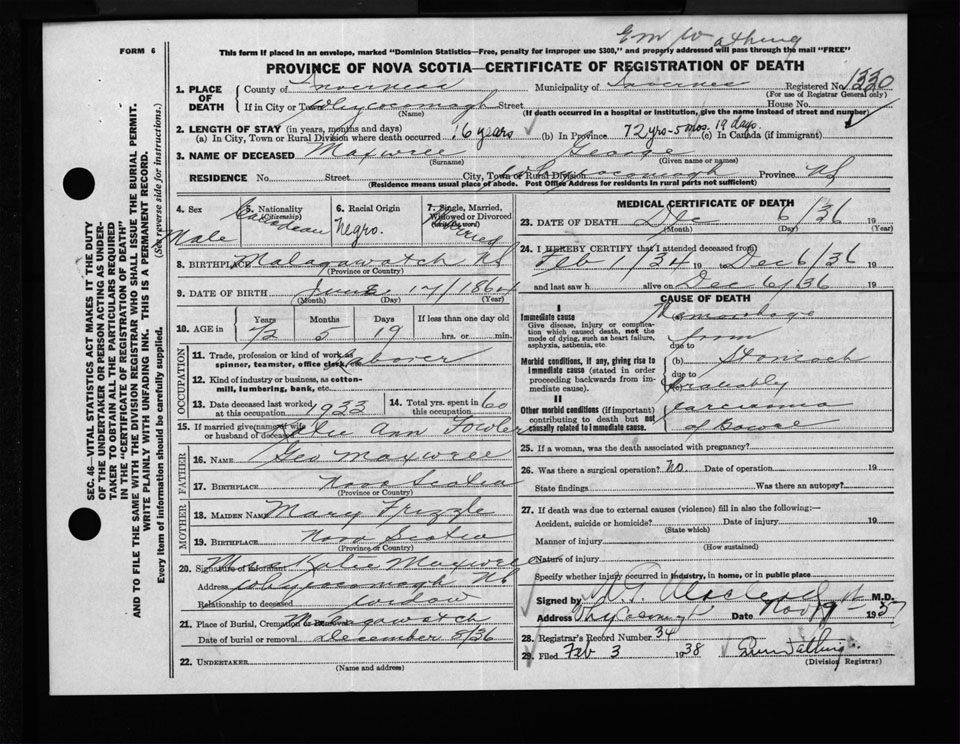 E M Wathing
FORM 6
This form if placed in an envelope, marked "Dominion Statistics—Free, penalty for improper use $300," and properly addressed will pass through the mail "FREE"
PROVINCE OF NOVA SCOTIA—CERTIFICATE OF REGISTRATION OF DEATH
1. PLACE OF DEATH
County of Inverness Municipality of Inverness Registered No. 1330
(For use of Registrar General only)
If in City or Town Whycocomagh Street House No.
(Name) (If death occurred in a hospital or institution, give the name instead of street and number)
2. LENGTH OF STAY (in years, months and days)
(a) In City, Town or Rural Division where death occurred 6 years (b) In Province 72 yrs-5 mos. 19 days. (c) In Canada (if immigrant)
3. NAME OF DECEASED Maxwell George
(Surname) (Given name or names)
RESIDENCE No. Street City, Town or Rural Division Whycocomagh Province NS
(Residence means usual place of abode. Post Office Address for residents in rural parts not sufficient)
4. Sex Male
5. Nationality (Citizenship) Canadean
6. Racial Origin Negro.
7. Single, Married, Widowed or Divorced
8. BIRTHPLACE Malagawatch NS
(Province or Country)
9. DATE OF BIRTH June 17/1864
(Month) (Day) (Year)
10. AGE in Years Months Days If less than one day old
72 5 19 hrs. or min.
OCCUPATION
11. Trade, profession or kind of work as spinner, teamster, office clerk, etc. Laborer
12. Kind of industry or business, as cotton-mill, lumbering, bank, etc.
13. Date deceased last worked at this occupation 1933
14. Total yrs. spent in this occupation 60
15. If married give name of wife or husband of deceased Katie Ann Fowler
FATHER
16. NAME Geo Maxwell
17. BIRTHPLACE Nova Scotia
(Province or Country)
MOTHER
18. MAIDEN NAME Mary Frizzle
19. BIRTHPLACE Nova Scotia
(Province or Country)
20. Signature of informant Mrs Katie Maxwell
Address Whycocomagh NS
Relationship to deceased widow
21. Place of Burial, Cremation or Removal Malagawatch
Date of burial or removal December 8/36
22. UNDERTAKER
(Name and address)
MEDICAL CERTIFICATE OF DEATH
23. DATE OF DEATH Dec 6/36 19
(Month) (Day) (Year)
24. I HEREBY CERTIFY that I attended deceased from
Feb 1/34 19 to Dec 6/36 19
and last saw h alive on Dec 6/36 19
CAUSE OF DEATH
I
Immediate cause Hemorrhage
Give disease, injury or complication which caused death, not the mode of dying, such as heart failure, asphyxia, asthenia, etc.
from
due to
Morbid conditions, if any, giving rise to immediate cause (stated in order proceeding backwards from immediate cause).
(b) Stomach
due to
Probably
II
Other morbid conditions (if important) contributing to death but not causally related to immediate cause.
carcinoma
of Bowel
25. If a woman, was the death associated with pregnancy?
26. Was there a surgical operation? No. Date of operation 19
State findings Was there an autopsy?
27. If death was due to external causes (violence) fill in also the following:—
Accident, suicide or homicide? Date of injury 19
(State which)
Manner of injury
(How sustained)
Nature of injury
Specify whether injury occurred in industry, in home, or in public place
Signed by M.D.
Address Date Nov 19th 1937
28. Registrar's Record Number 34
29. Filed Feb 3 1938 E M Wathing
(Division Registrar)
SEC. 46—VITAL STATISTICS ACT MAKES IT THE DUTY
OF THE UNDERTAKER OR PERSON ACTING AS UNDERTAKER TO OBTAIN ALL THE PARTICULARS REQUIRED
IN THE "CERTIFICATE OF REGISTRATION OF DEATH"
AND TO FILE THE SAME WITH THE DIVISION REGISTRAR WHO SHALL ISSUE THE BURIAL PERMIT.
WRITE PLAINLY WITH UNFADING INK. THIS IS A PERMANENT RECORD.
Every item of information should be carefully supplied. (See reverse side for instructions.)